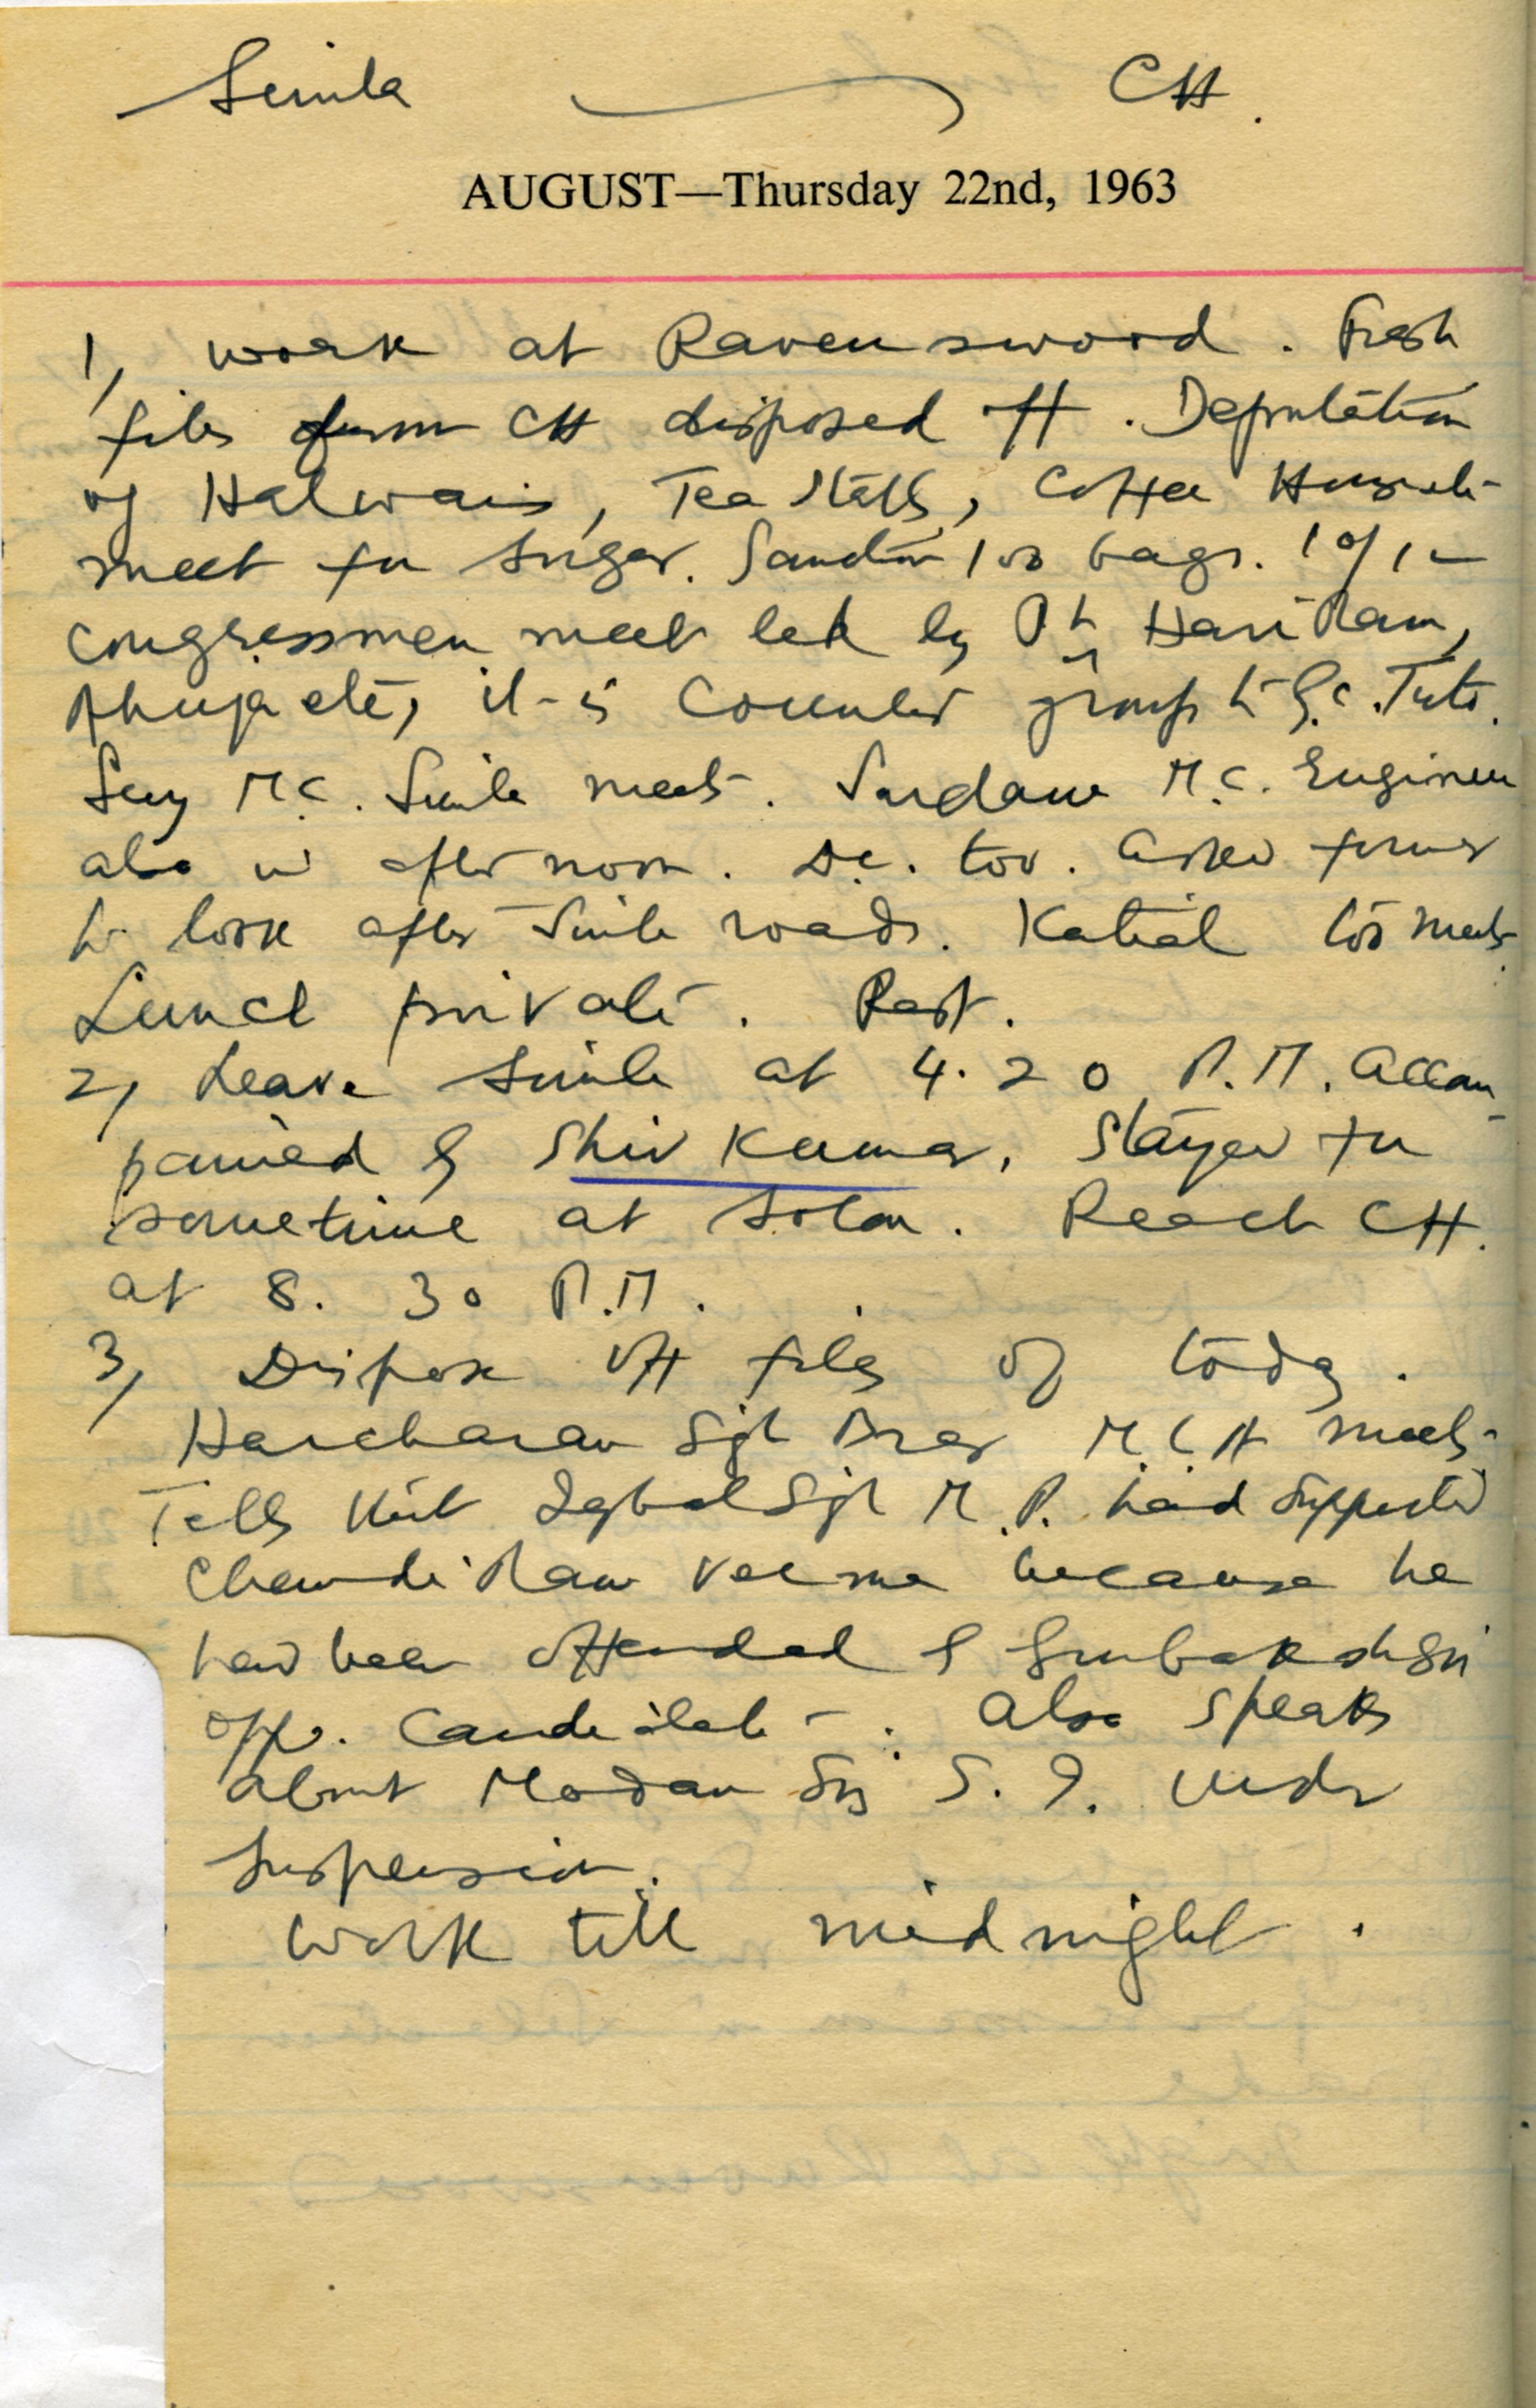 Simla CH.
AUGUST—Thursday 22nd, 1963
1, work at Ravenswood. Fresh
files from CH disposed off. Deputation
of Halwais, Tea Stalls, Coffee
meet for Sugar. Sanction 100 bags. 10/12
Congressmen meet led by Pt Hari Ram,
Ahuja etc, it is Counter group to
Secy M.C. Simla meets. M.C. Engineer
also in afternoon. D.C. too. Asked former
to look after Simla roads. Katial too meets
Lunch private. Rest.
2, Leave Simla at 4.20 P.M. accom-
panied by Shiv Kumar. Stayed for
sometime at Solan. Reach CH.
at 8.30 P.M.
3, Dispose off files of today.
Harcharan Sgh Brar M.L.A meets
Tells that Iqbal Sgh M.P. had supported
Chandi Ram Verma because he
had been offended by Gurbaksh
opp. Candidate. Also speaks
about Madan S.I. under
Suspension.
Work till midnight.